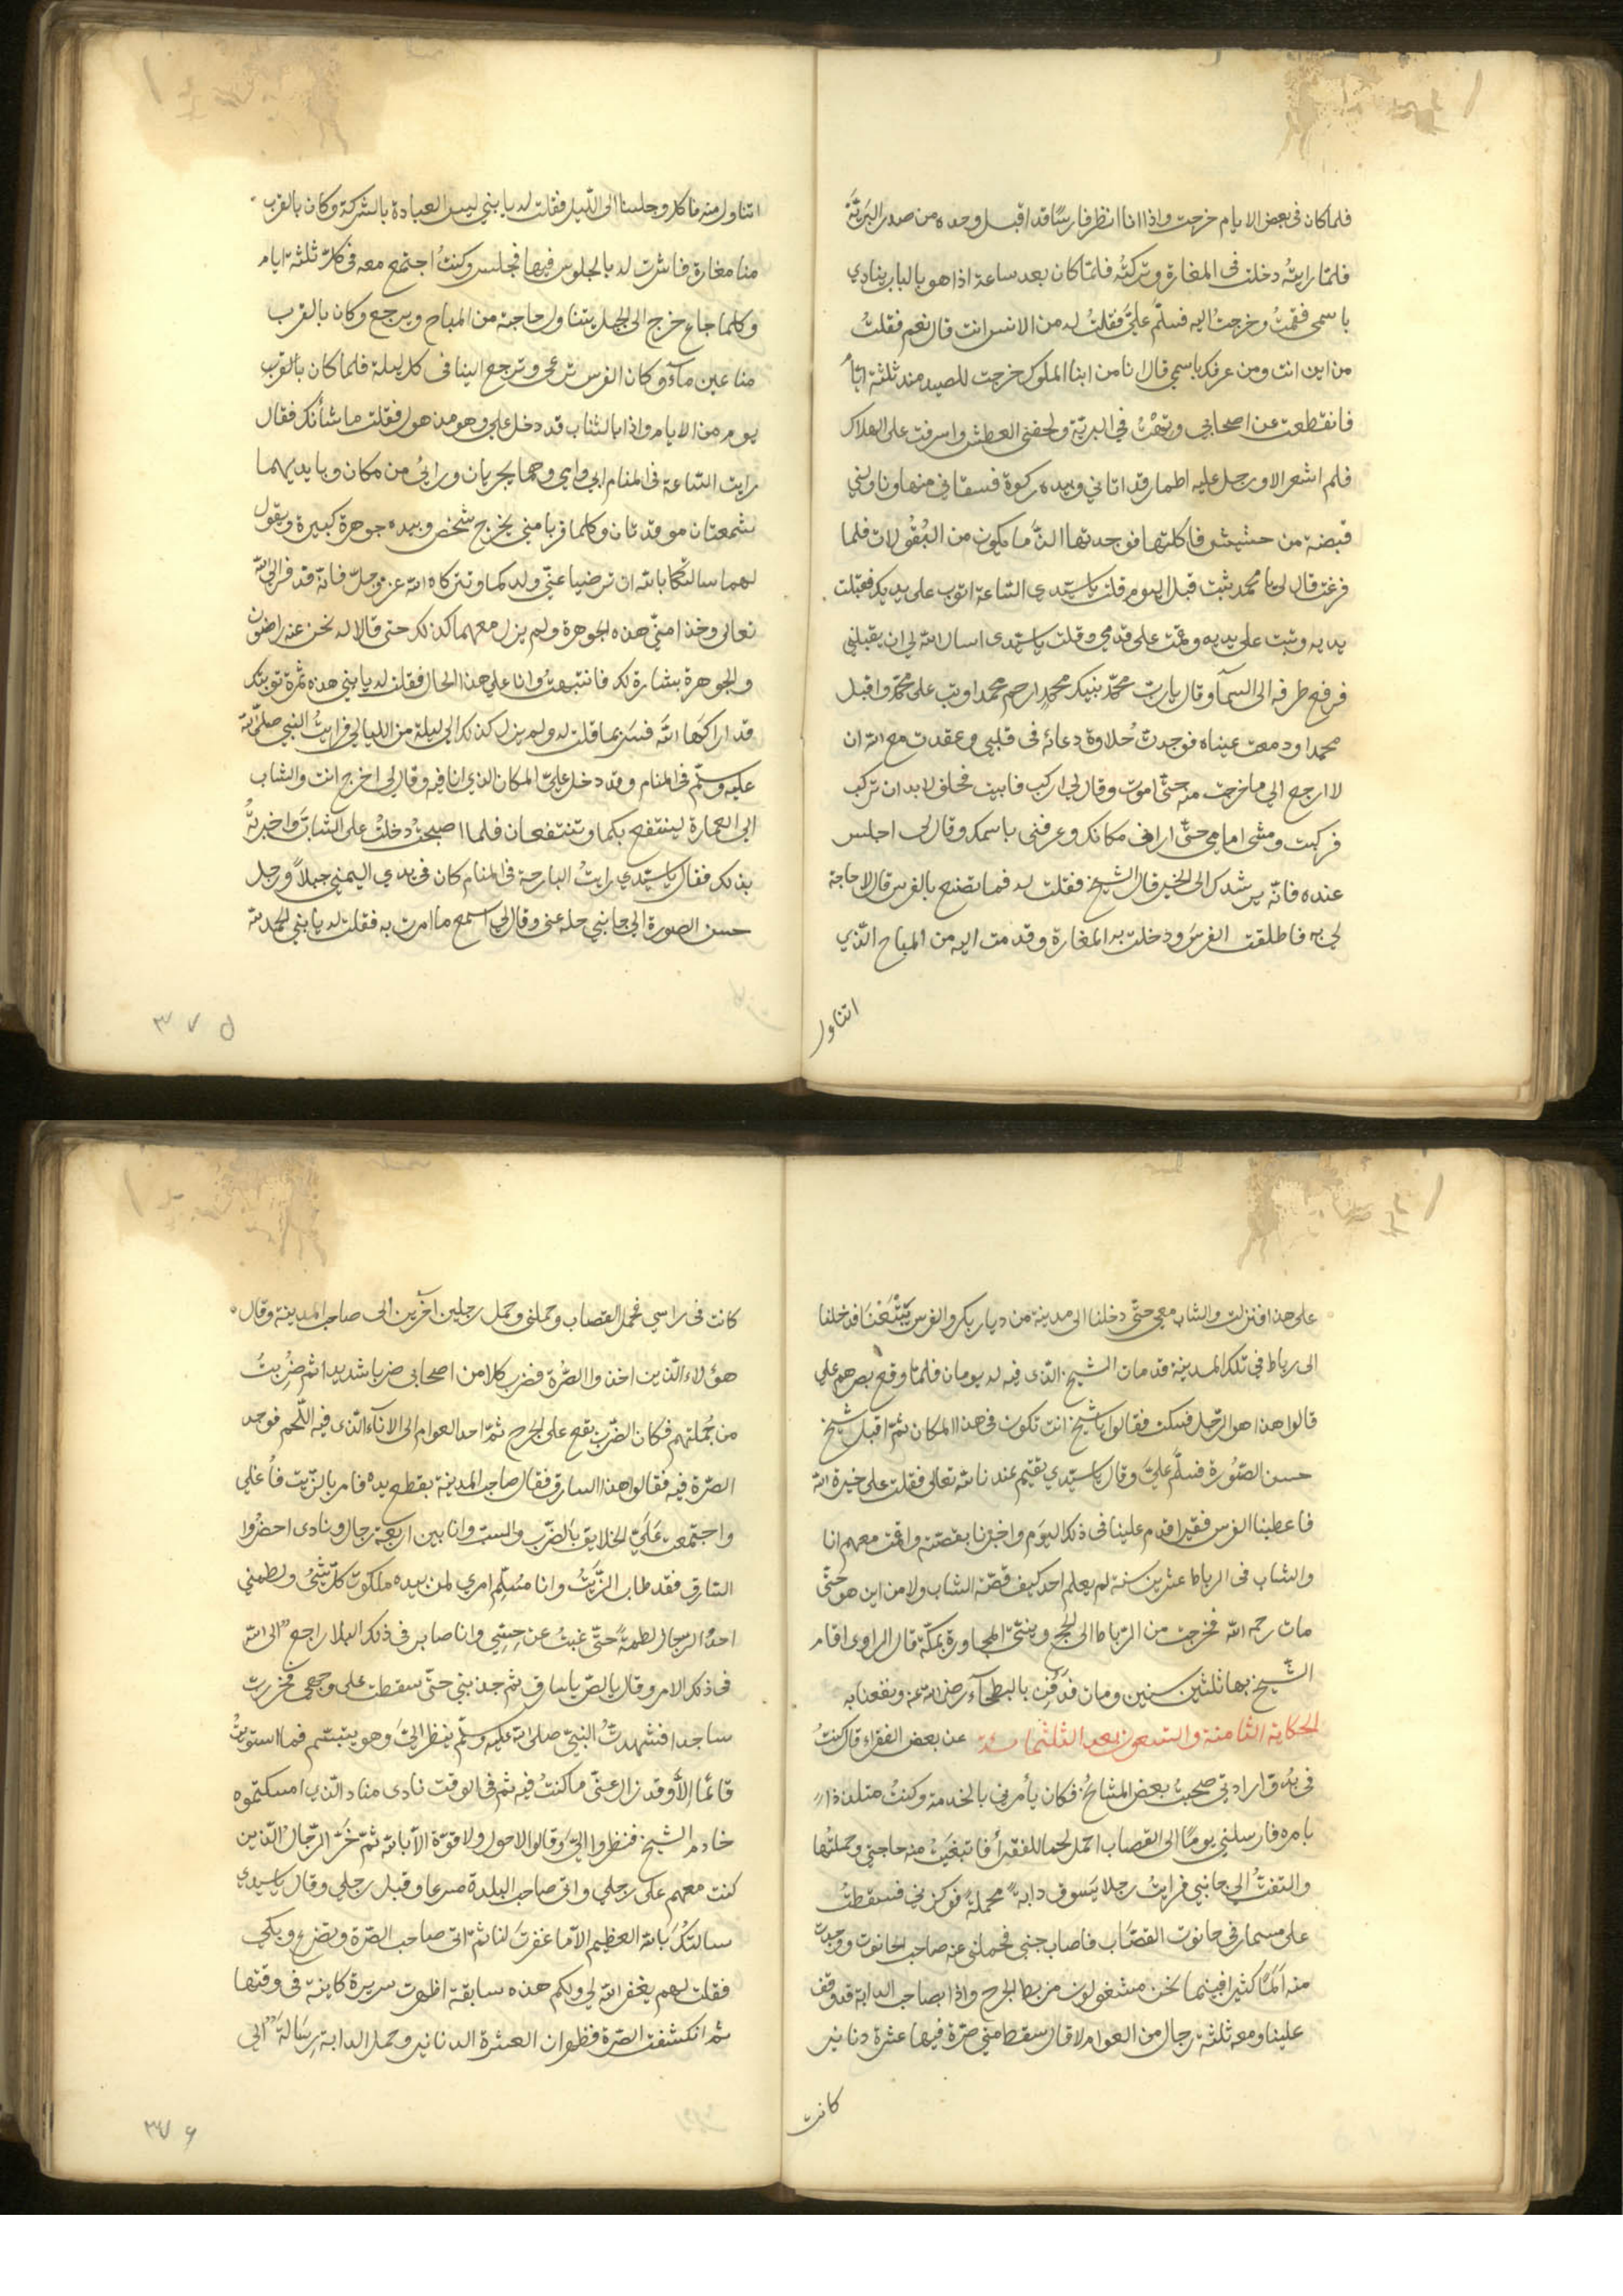 فلما كان فى بعض الايام خرجت واذا انا انظر فارسًا قد اقبل وحده من صدر البريّة
فلمّا رايتهُ دخلت فى المغارة وتركتُه فلمّا كان بعد ساعة اذا هو بالباب ينادي
باسمى فقمتُ وخرجتُ اليه فسلّم عليَّ فقلتُ له من الانس انت قال نعم فقلتُ
من اين انت ومن عرفك باسمى قال انا من ابنا الملوك خرجت للصيد منذ ثلثة ايّام
فانقطعت عن اصحابي وتهْتُ في البريّة ولحقنى العطش واسرفت على الهلاك
فلم اشعر الا ورجل عليه اطمار قد اتانى وبيده ركوة فسقانى منها وناولنى
قبضة من حشيش فاكلتها فوجدتها الذّ ما يكون من البُقُولات فلما
فرغت قال لى يا محمد تبت قبل اليوم قلت يا سيّدى الساعة اتوب على يديك فقبلت
يديه وتبت على يديه وقمت على قدمي وقلت يا سيّدى اسال الله لى ان يقبلنى
فرفع طرفه الى السمآ وقال يا ربّ محمّد بنبيك محمدٍ ارحم محمدا وتب على محمّد واقبل
محمدا ودمعت عيناه فوجدت حُلاوة دعائه فى قلبى وعقدت مع الله ان
لا ارجع الى ما خرجت منه حتّى اموت وقال لى اركب فابيت فحلف لا بد ان تركب
فركبت ومشى امامى حتّى ارانى مكانك وعرفنى باسمك وقال لى اجلس
عنده فانّه يرشدك الى الخير قال الشيخ فقلت له فما تصنع بالفرس قال لا حاجة
لى به فاطلقت الفرسَ ودخلت به المغارة وقدمت اليه من المباح الّذي
اتناول
اتناول منه فاكل وجلسنا الى اللّيل فقلت له يا بني ليس العبادة بالشركة وكان بالقرب
منا مغارة فاشرت له بالجلوس فيها فجلس وكنتُ اجتمع معه فى كلّ ثلثة ايام
وكلما جاع خرج الى الجبل يتناول حاجته من المباح ويرجع وكان بالقرب
منا عين مآء وكان الفرس ترعى وترجع الينا فى كل ليلة فلما كان بالقرب
يوم من الايام واذا بالشاب قد دخل علي وهو مذهول فقلت ما شأنك فقال
رايت السّاعة فى المنام ابى وامى وهما يجريان ورائى من مكان وبايديهما
شمعتان موقدتان وكلما قربا منى يخرج شخص وبيده جوهرة كبيرة ويقول
لهما سالتكما بالله ان ترضيا عنّى ولدكما وتتركاه الله عز وجلّ فانّه قد فرّ الى الله
تعالى وخذا منّى هذه الجوهرة ولم يزل معهما كذلك حتى قالا له نحن عنه راضون
والجوهرة بشارة لك فانتبهتُ وانا على هذا الحال فقلت له يا بني هذه ثمرة توبتك
قد اراكها الله فسرّ بما قلت له ولم يزل كذلك الى ليلة من الليالى فرايتُ النبي صلى الله
عليه وسلّم فى المنام وقد دخل عليّ المكان الذى انا فيه وقال لى اخرج انت والشاب
الى العمارة لينتفع بكما وتنتفعان فلما اصبحتُ دخلتُ على الشابّ واخبرتُه
بذلك فقال يا سيّدى رايتُ البارحة فى المنام كان فى يدى اليمنى حبلاً ورجل
حسن الصورة الى جانبى حله عنى وقال لى اسمع ما امرت به فقلت له يا بني الحمد لله
٣٧٥
على هذا فنزلت والشاب معى حتّى دخلنا الى مدينة من ديار بكر والفرس يَتْبَعُنَا فدخلنا
الى رباط فى تلك المدينة قد مات الشيخ الّذى فيه له يومان فلمّا وقع بصرهم علي
قالوا هذا هو الرّجل فسكت فقالوا يا شيخ انت تكون فى هذا المكان ثمّ اقبل شيخ
حسن الصّورة فسلّم عليَّ وقال يا سيّدى يقيم عندنا لله تعالى فقلت على خيرة الله
فاعطينا الفرس فقيرا قدم علينا فى ذلك اليوم واخبرنا بقصّته واقمت معهم انا
والشاب فى الرباط عشرين سنة لم يعلم احد كيف قصّة الشاب ولا من اين هو حتّى
مات رحمه الله فخرجت من الرّباط الى الحج ونيتى المجاورة بمكّة قال الراوى اقام
الشّيخ بها ثلثين سنين ومات فدُفِن بالبطحآء رضى الله عنه ونفعنا به
الحكاية الثامنة والتسعون بعد الثلثمائة عن بعض الفقراء قال كنتُ
فى بدوّ ارادتى صحبتُ بعض المشائخ فكان يأمرنى بالخدمة وكنتُ متلذذا
بامره فارسلنى يومًا الى القصاب احمل لحما للفقرآ فابتغيتُ منه حاجتى وحملتُها
والتفتّ الى جانبى فرايتُ رجلا يَسوق دابة محملة فوكزنى فسقطتُ
على مسمار فى حانوت القصّاب فاصاب جنبى فحملنى عنه صاحب الحانوت ووجدت
منه المًا كثيرا فبينما نحن مشغولون من ربط الجرح واذا بصاحب الدابة قد وقف
علينا ومعه ثلثة رجال من العوام لا قال سقط منى صرّة فيها عشرة دنانير
كانت
كانت فى راسي فحمل القصاب وحملنى وحمل رجلين آخرين الى صاحب المدينة وقال
هؤلاء الّذين اخذوا الصّرة فضرب كلا من اصحابى ضربا شديدا ثم ضُرِبتُ
من جُملتهم فكان الضّرب يقع على الجرح ثمّ احد العوام الى الانآء الّذى فيه اللّحم فوجد
الصّرة فيه فقالوا هذا السارق فقال صاحب المدينة بقطع يده فامر بالزّيت فأُغلي
واجتمعت عَلَيّ الخلايق بالضّرب والسبّ وانا بين اربعة رجال ونادى احضُروا
السّارق فقد طاب الزّيتُ وانا مُسلّم امرى لمن بيده ملكوت كلّ شئ ولطمنى
احدُ الرجال لطمةً حتّى غبتُ عن حِسّى وانا صابر فى ذلك البلا راجع الى الله
فى ذلك الامر وقال يا لصّ يا سارق ثم جذبنى حتّى سقطت على وجهى فخررت
ساجدا فشهدتُ النبيّ صلى الله عليه وسلّم ينظر اليّ وهو يتبسّم فما استويتُ
قائما إلّا وقد زال عنّى ما كنتُ فيه ثم فى الوقت نادى مناد الّذى امسكتموه
خادم الشيخ فنظروا اليّ وقالوا لا حول ولا قوّة الّا بالله ثمّ خَرّ الرّجال الّذين
كنت معهم على رجلي واتى صاحب البلدة مسرعا وقبل رجلي وقال يا سيدى
سالتُكَ بالله العظيم الّا ما غفرتَ لنا ثمّ اتى صاحب الصّرة وتضرع وبكى
فقلت لهم يغفر الله لى ولكم هذه سابقة اظهرت سريرة كاينة فى وقتها
ثم انكشفت الصّرة فظهر ان العشرة الدنانير وحمل الدابة رِسَالةً الى
٣٧٦